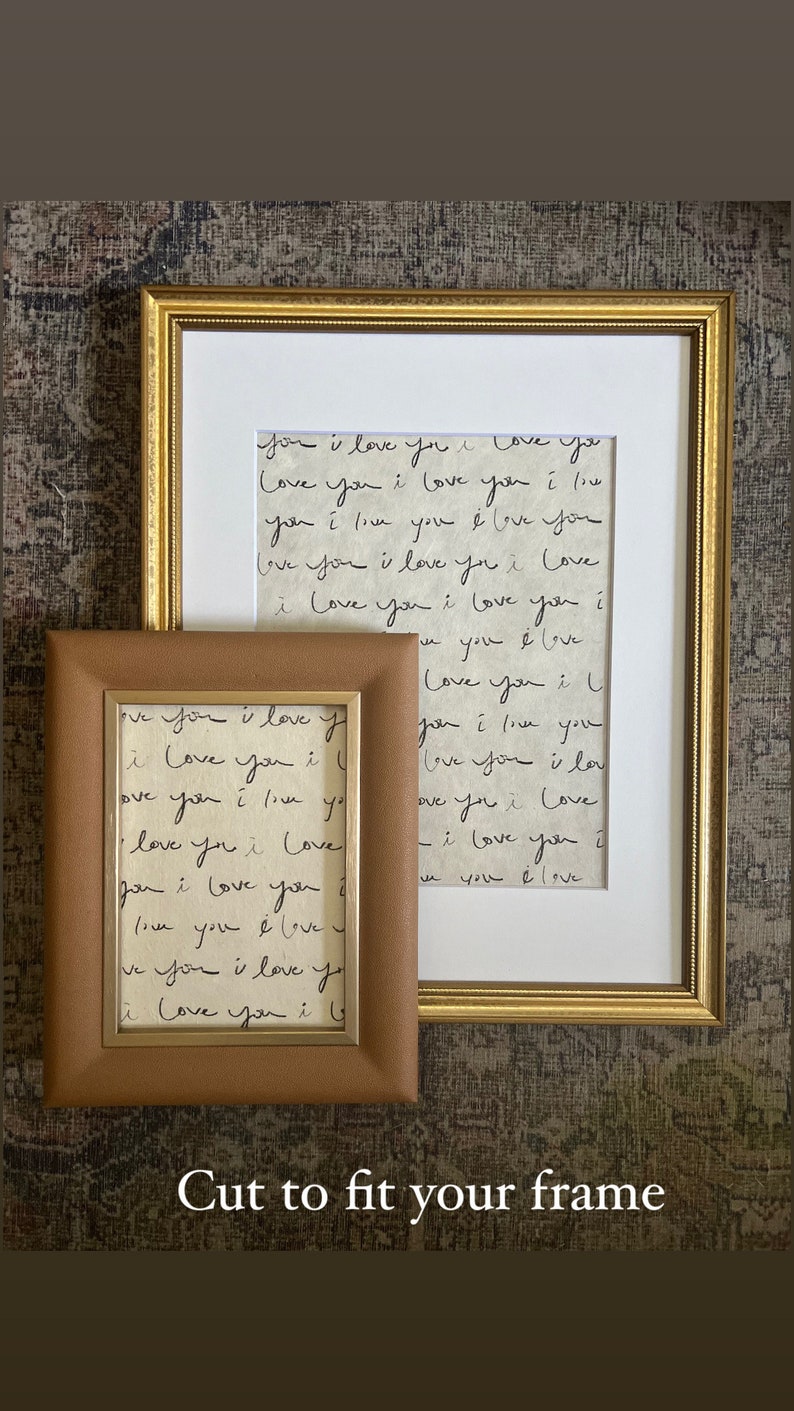 you i love you i love you
love you i love you i love
you i love you i love you
love you i love you i love
i love you i love you i
you i love
love you i l
you i love you
love you i lov
ove you i love
i love you i
you i love
ove you i love y
i love you i l
ove you i love yo
love you i love
you i love you i
love you i love y
ve you i love yo
i love you i l
Cut to fit your frame